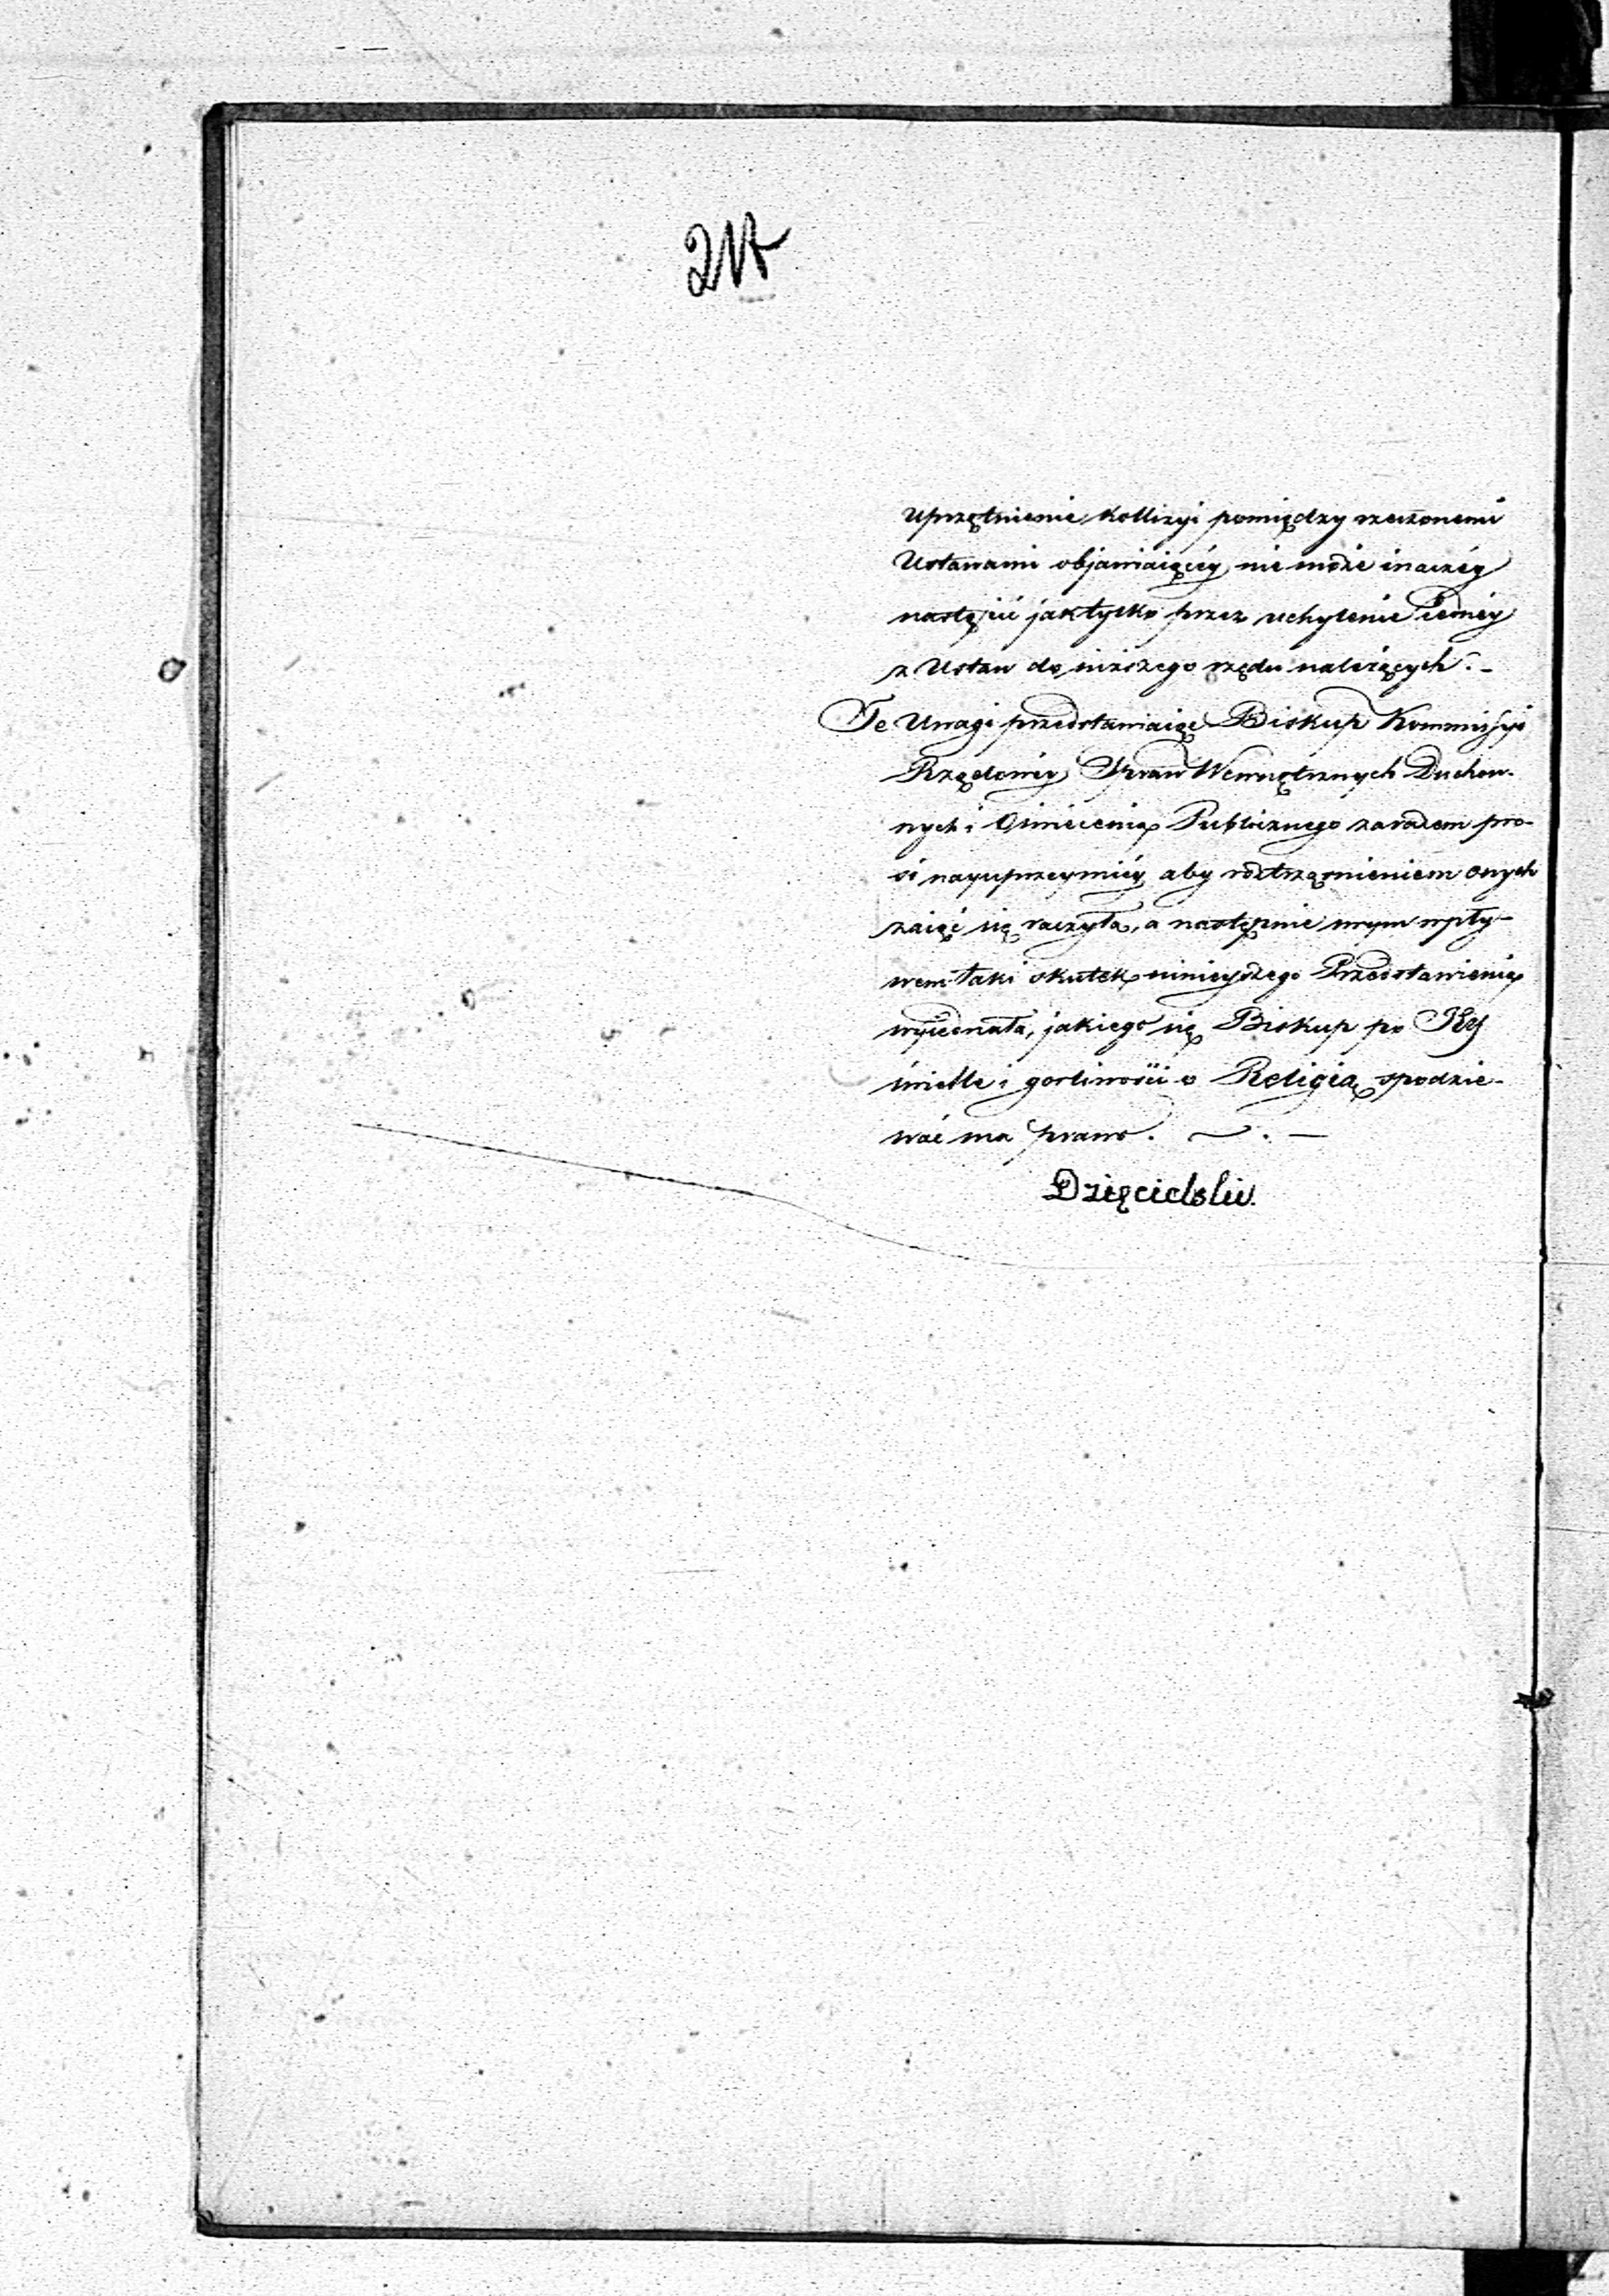 uprzątnienie kollizyi pomiędzy rzeczonemi
Ustawami objawiaiącéy nie może inaczéy
nastąpić jak tylko przez uchylenie iednéy
z Ustaw do niższego rzędu należących. –
Te Uwagi przedstawiaiąc Biskup Kommissyi
Rządowéy Spraw Wewnętrznych Duchow-
nych i Oświecenia Publicznego zarazem pro-
si nayuprzeymiéy aby roztrząśnieniem onych
zaiąć się raczyła, a następnie swym wpły-
wem taki skutek ninieyszego Przedstawienia
wyiednała, jakiego się Biskup po Jéy
świetle i gorliwości o Religią spodzie-
wać ma prawo. – . –
Dzięcielski